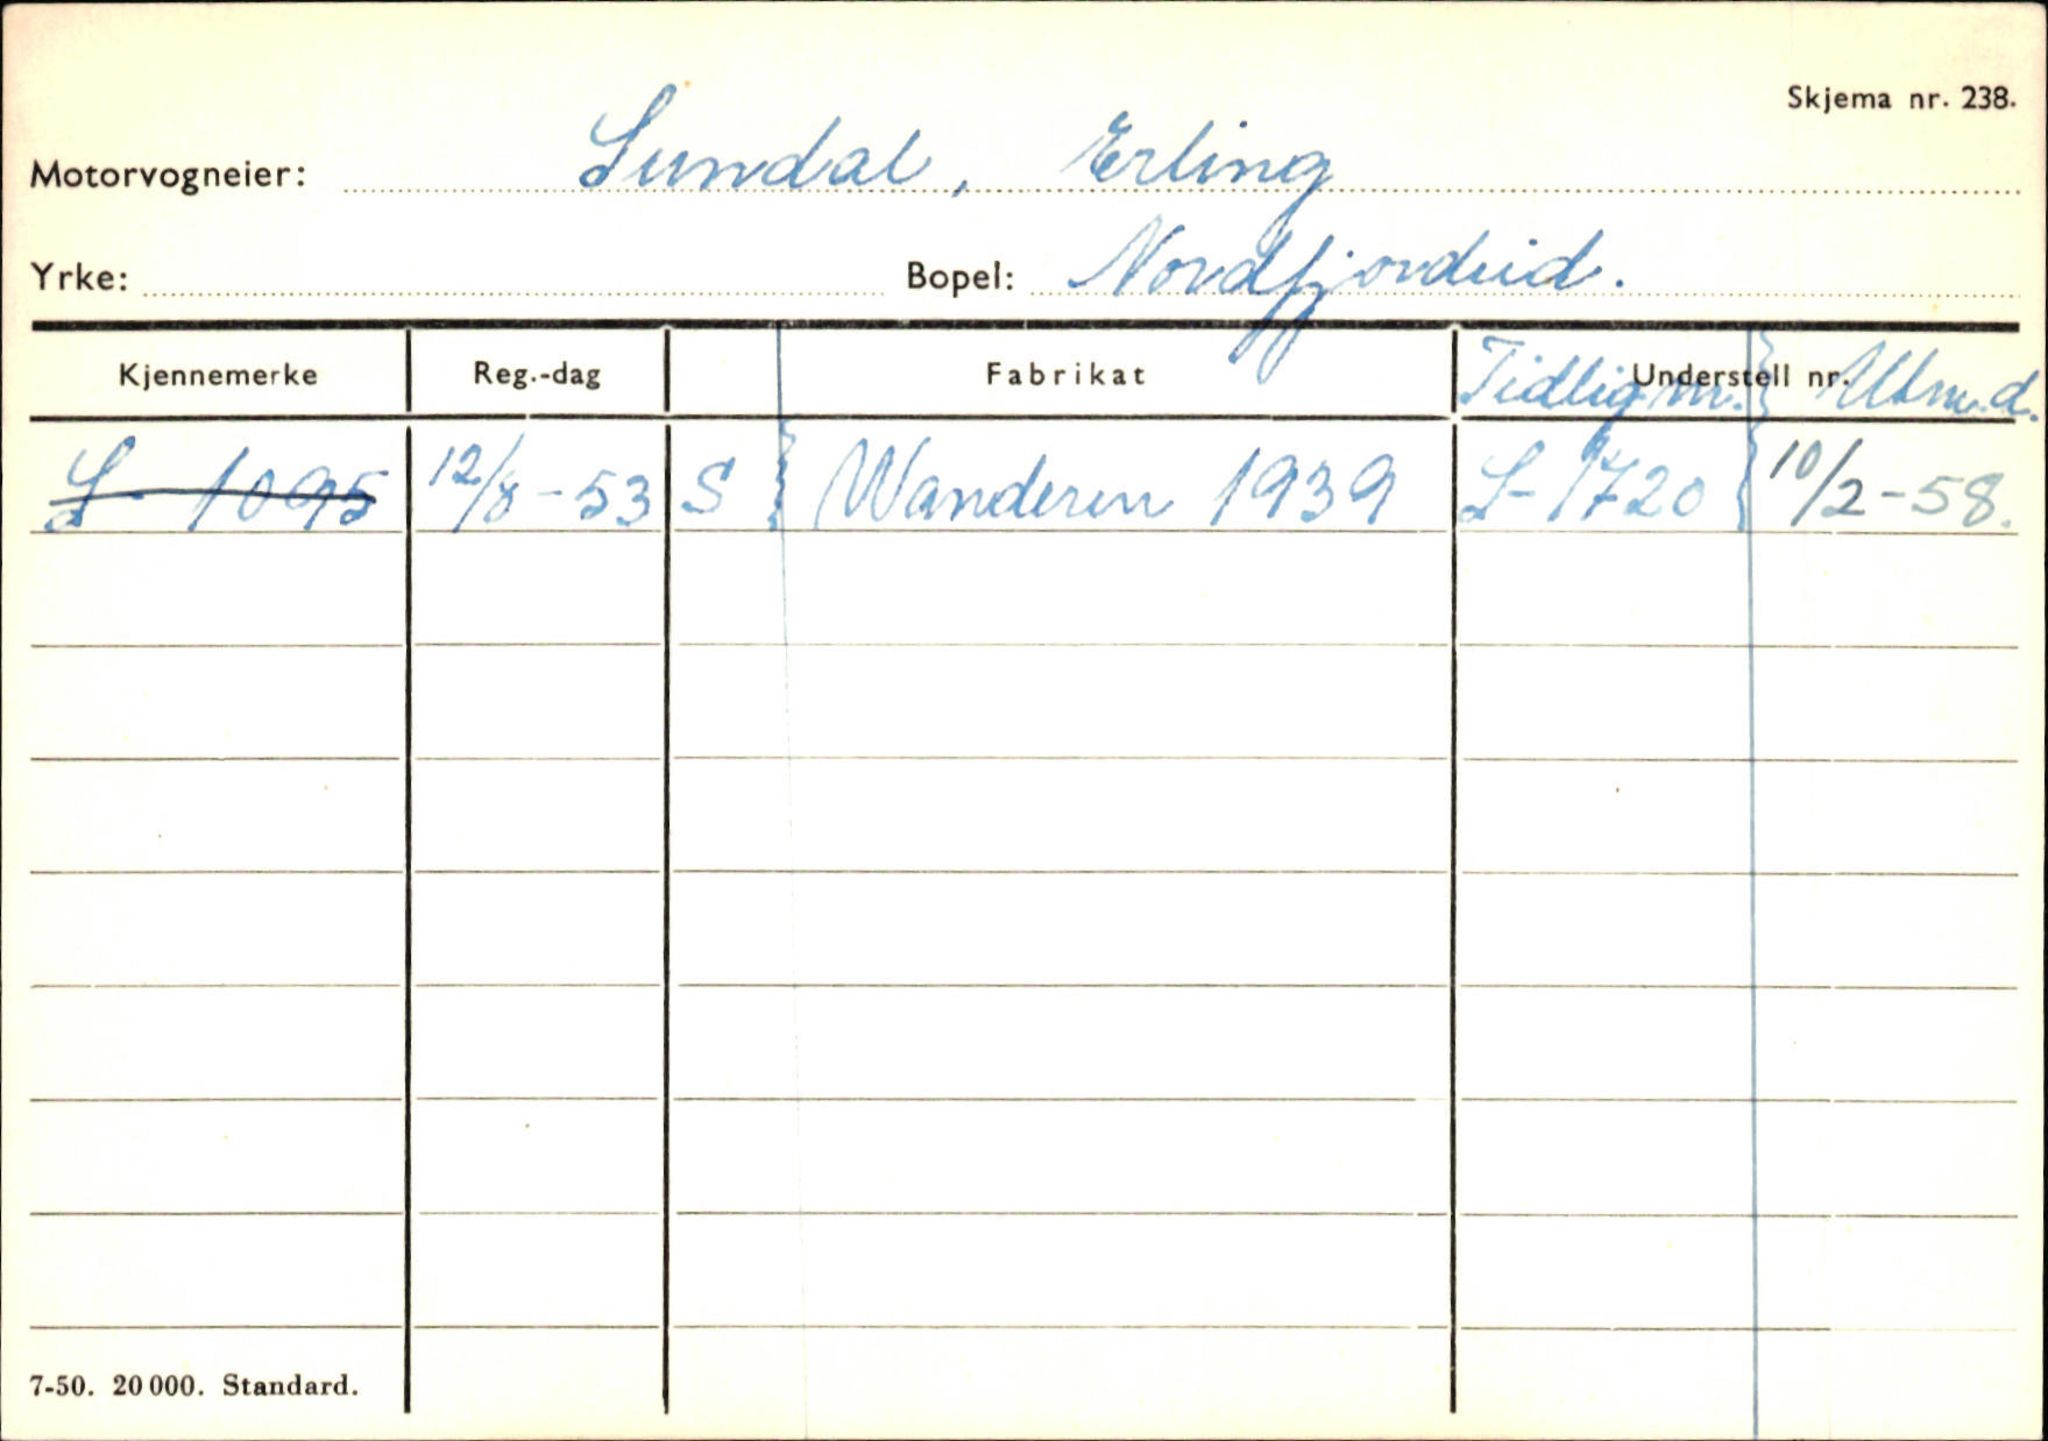 Skjema nr. 238.
Motorvogneier: Sundal, Erling
Yrke: Bopel: Nordfjordeid.
Kjennemerke Reg.-dag Fabrikat Tidlig. m. Understell nr. Utm.d.
S- 1095 12/8-53 S Wanderen 1939 S-1720 10/2-58.
7-50. 20 000. Standard.